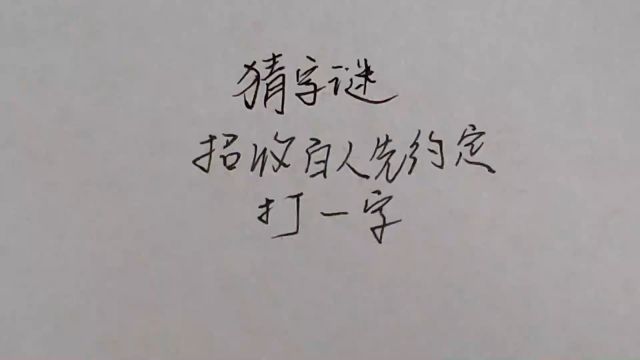 猜字谜
招收百人先约定
打一字